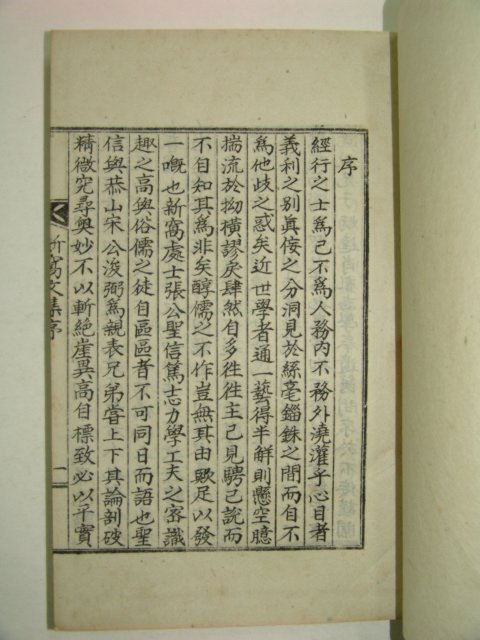 序
經行之士爲己不爲人務內不務外澆灌乎心目者
義利之別眞佞之分洞見於絲毫錙銖之間而自不
爲他歧之惑矣近世學者通一藝得半解則懸空臆
揣流於拗橫謬戾肆然自多徃徃主己見騁己說而
不自知其爲非矣醇儒之不作豈無其由歟足以發
一嘅也新窩處士張公聖信篤志力學工夫之密識
趣之高與俗儒之徒自區區者不可同日而語也聖
信與恭山宋公浚弼爲親表兄弟嘗上下其論剖破
精微究尋奧妙不以斬絶崖異高自標致必以平實
新窩文集序
一